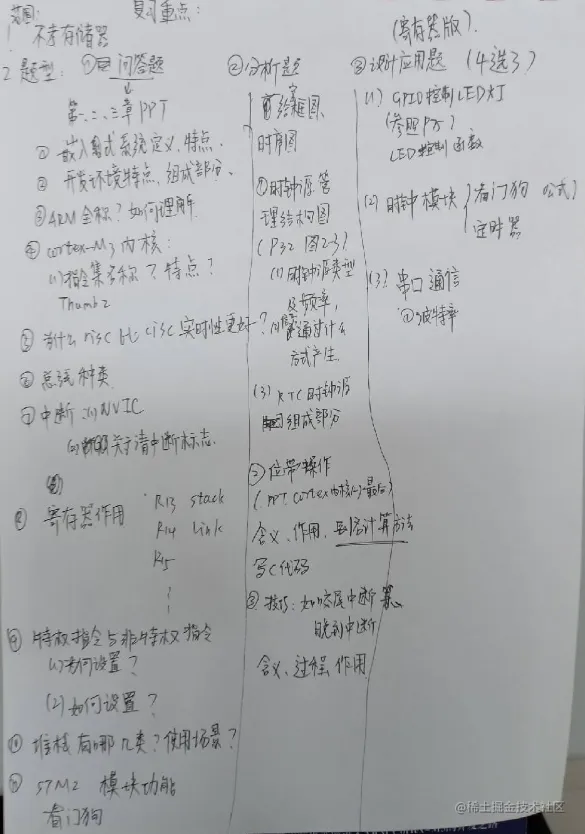 范围: 复习重点:
1. 不考存储器
2 题型: ① 问答题
↓
第一、二、三章PPT
① 嵌入式系统定义、特点.
② 开发环境特点、组成部分、
③ ARM 全称? 如何理解
④ cortex-M3 内核:
(1)指令集名称? 特点?
Thumb2
⑤ 为什么 risc 比 cisc 实时性更好?
⑥ 总线种类
⑦ 中断 (1)NVIC
(2) 关于清中断标志.
⑧ 寄存器作用 R13 stack
R14 link
R15
⑨ 特权指令与非特权指令
(1)为何设置?
(2) 如何设置?
⑩ 堆栈有哪几类? 使用场景?
⑪ STM2 模块功能
看门狗
② 分析题
给框图、
时育图
①时钟源管
理结构图
(P32 图2-3)
(1) 时钟源类型
及频率,
通过什么
方式产生.
(3) RTC时钟源
组成部分
② 位带操作
(PPT cortex内核(-)最后)
含义、作用、计算方法
写C代码
③
含义、过程、作用
(寄存器版).
③ 设计应用题 (4选3)
(1) GPIO控制LED灯
(参照P75)
LED控制函数
(2) 时钟模块 { 看门狗 公式
定时器
(3) 串口通信
①波特率
@稀土掘金技术社区